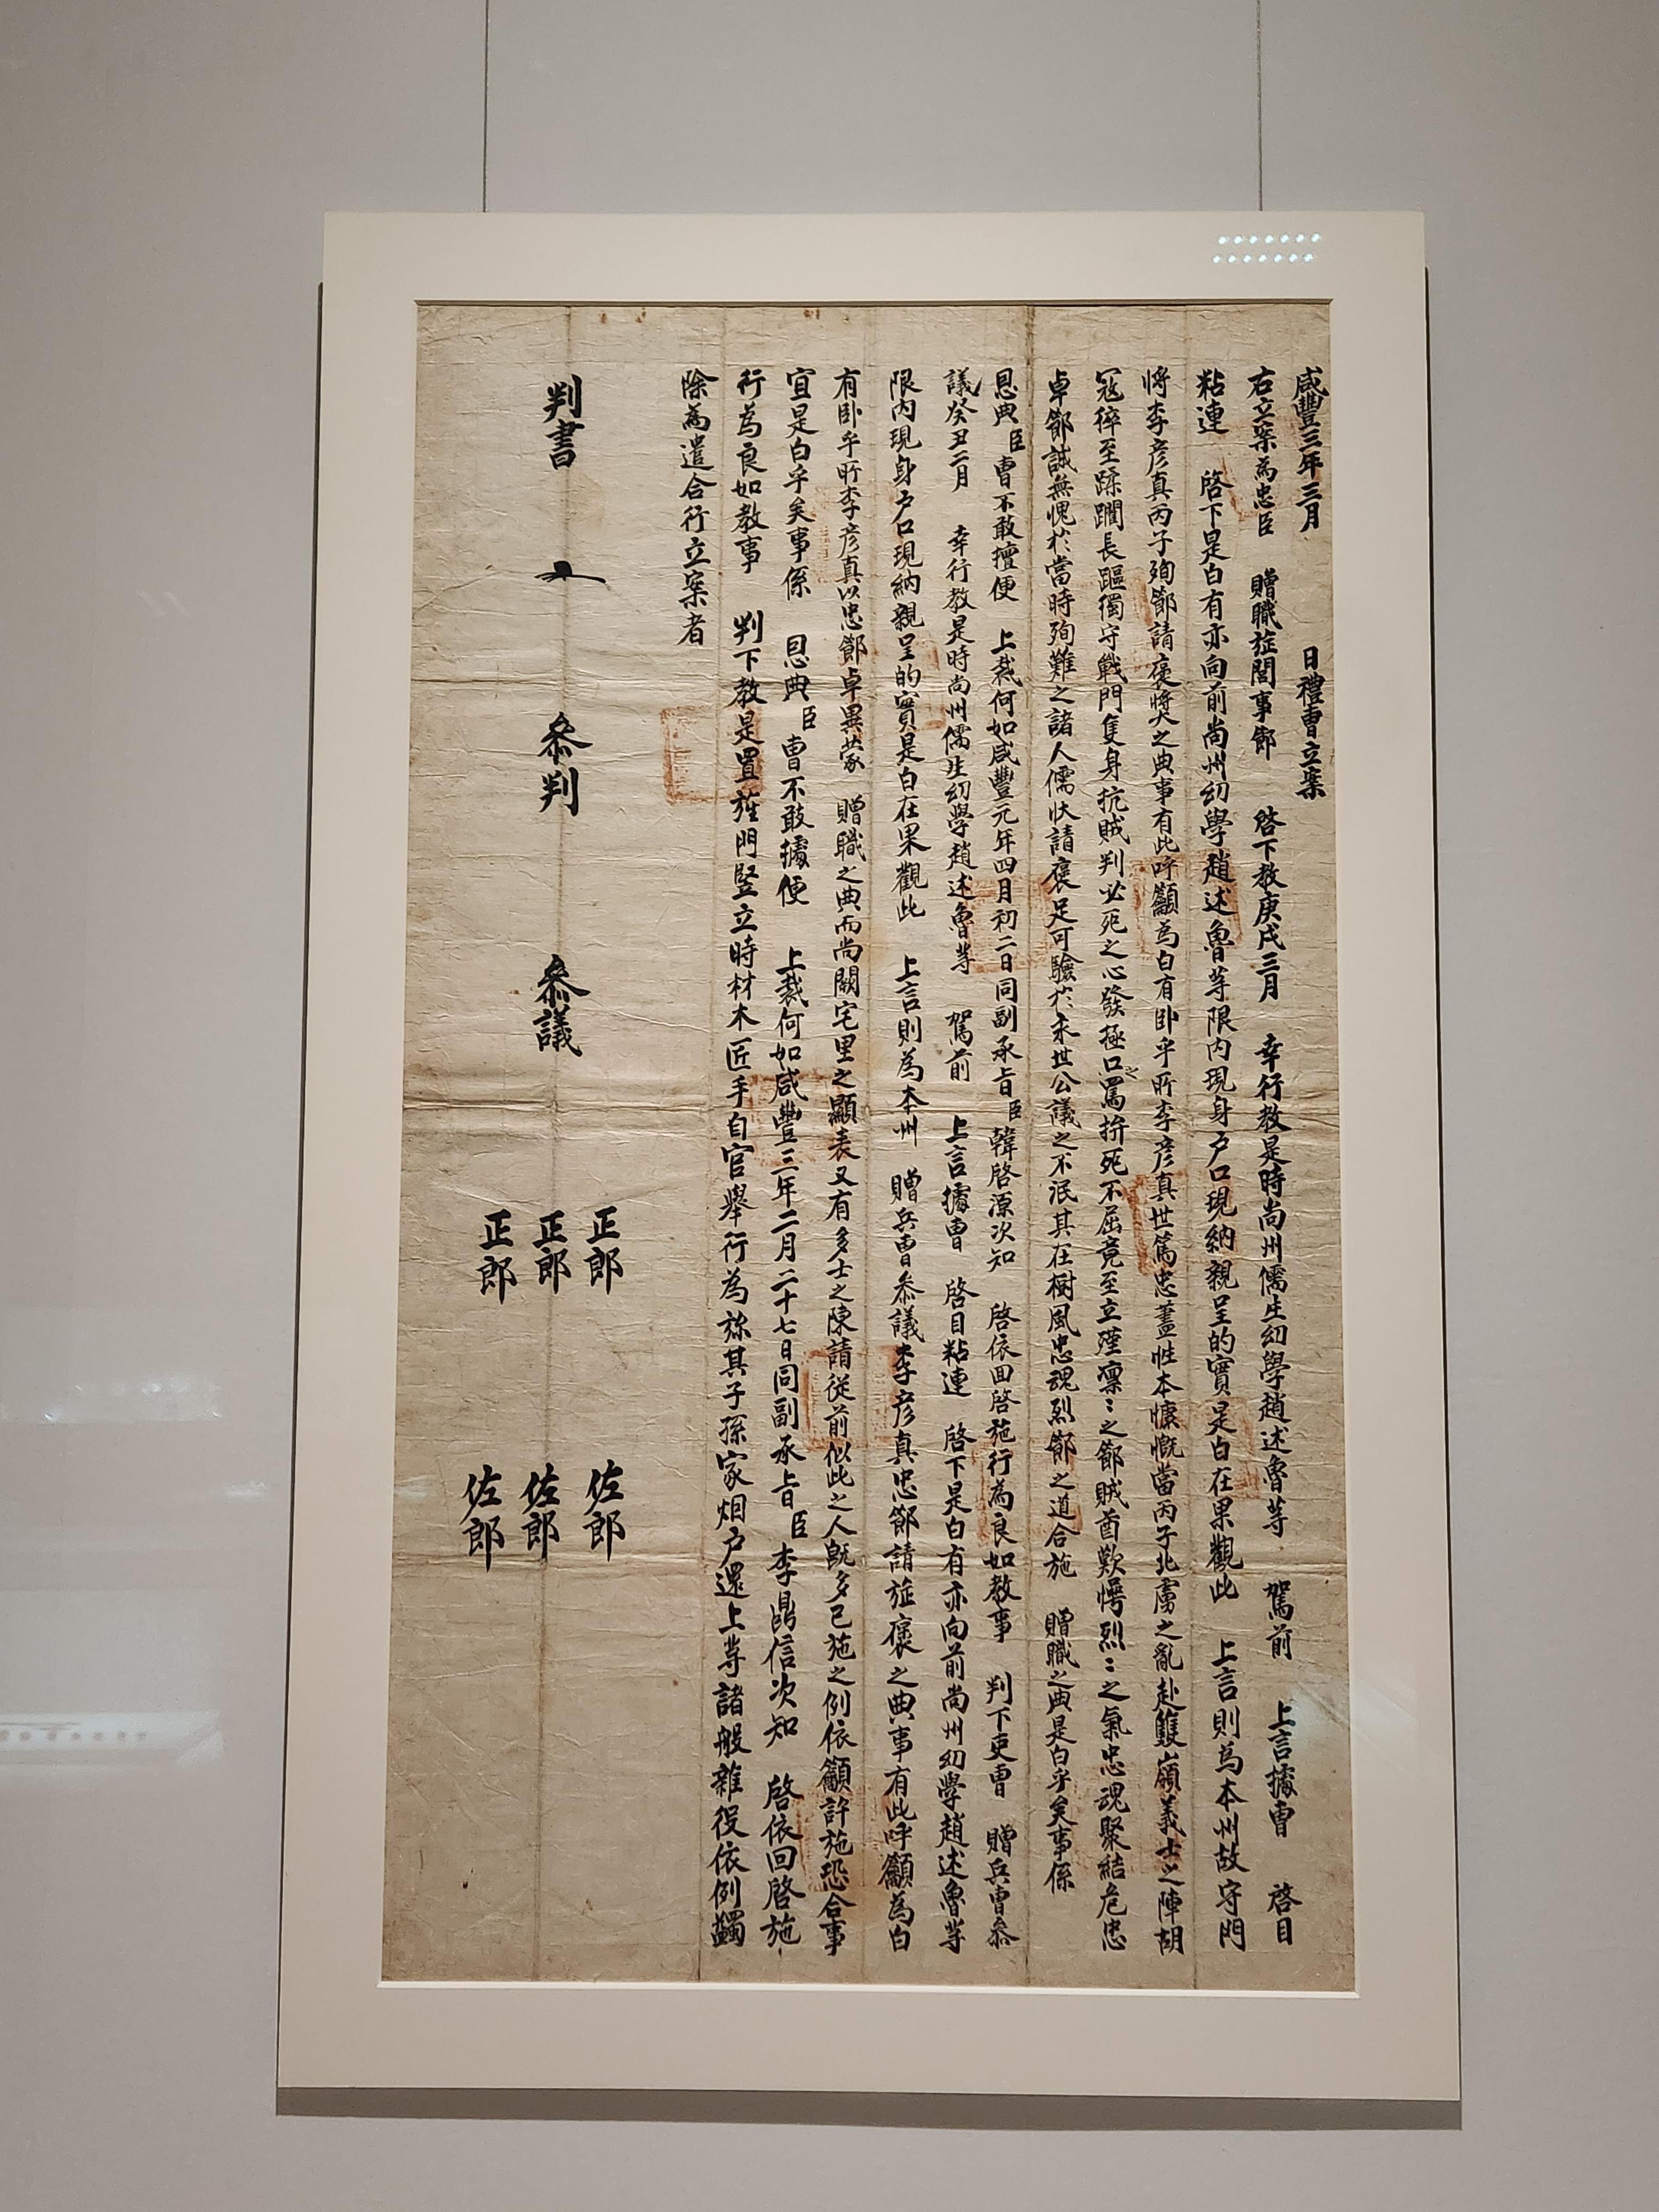 咸豐三年三月 日禮曹立案
右立案為忠臣 贈職旌閭事節 啓下教庚戌三月 幸行教是時尚州儒生幼學趙述魯等 駕前 上言據曹 啓目
粘連 啓下是白有亦向前尚州幼學趙述魯等限内現身户口現納親呈的實是白在果觀此 上言則為本州故守門
將李彦真丙子殉節請褒奬之典事有此呼籲為白有卧乎所李彦真世篤忠藎性本慷慨當丙子北虜之亂赴雙嶺義士之陣胡
冦猝至蹂躙長驅獨守戟門隻身抗賊判必死之心發極口之罵拚死不屈竟至立殣凛〻之節賊酋歎愕烈〻之氣忠魂聚結危忠
卓節誠無愧於當時殉難之諸人儒状請褒足可驗於来世公議之不泯其在樹風忠魂烈節之道合施 贈職之典是白乎矣事係
恩典臣曹不敢擅便 上裁何如咸豐元年四月初二日同副承旨臣韓啓源次知 啓依回啓施行為良如教事 判下吏曹 贈兵曹叅
議癸丑二月 幸行教是時尚州儒生幼學趙述魯等 駕前 上言據曹 啓目粘連 啓下是白有亦向前尚州幼學趙述魯等
限内現身户口現納親呈的實是白在果觀此 上言則為本州 贈兵曹叅議李彦真忠節請旌褒之典事有此呼籲為白
有卧乎所李彦真以忠節卓異蒙 贈職之典而尚闕宅里之顯表又有多士之陳請從前似此之人既多已施之例依籲許施恐合事
宜是白乎矣事係 恩典臣曹不敢據便 上裁何如咸豐三年二月二十七日同副承旨臣李鼎信次知 啓依回啓施
行為良如教事 判下教是置旌門竪立時材木匠手自官舉行為旀其子孫家烟户還上等諸般雜役依例蠲
除為遣合行立案者
判書 叅判 叅議 正郎 佐郎
正郎 佐郎
正郎 佐郎